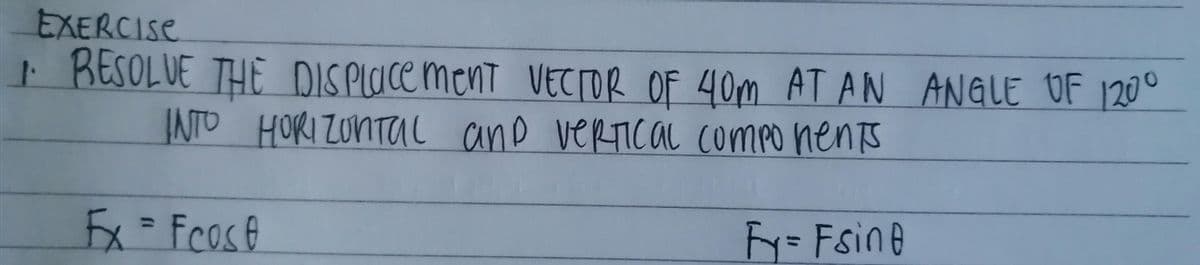 EXERCISE
1. RESOLVE THE DISPLACEMENT VECTOR OF 40m AT AN ANGLE OF 120°
INTO HORIZONTAL AND VERTICAL COMPONENTS
Fx = Fcosθ Fy = Fsinθ